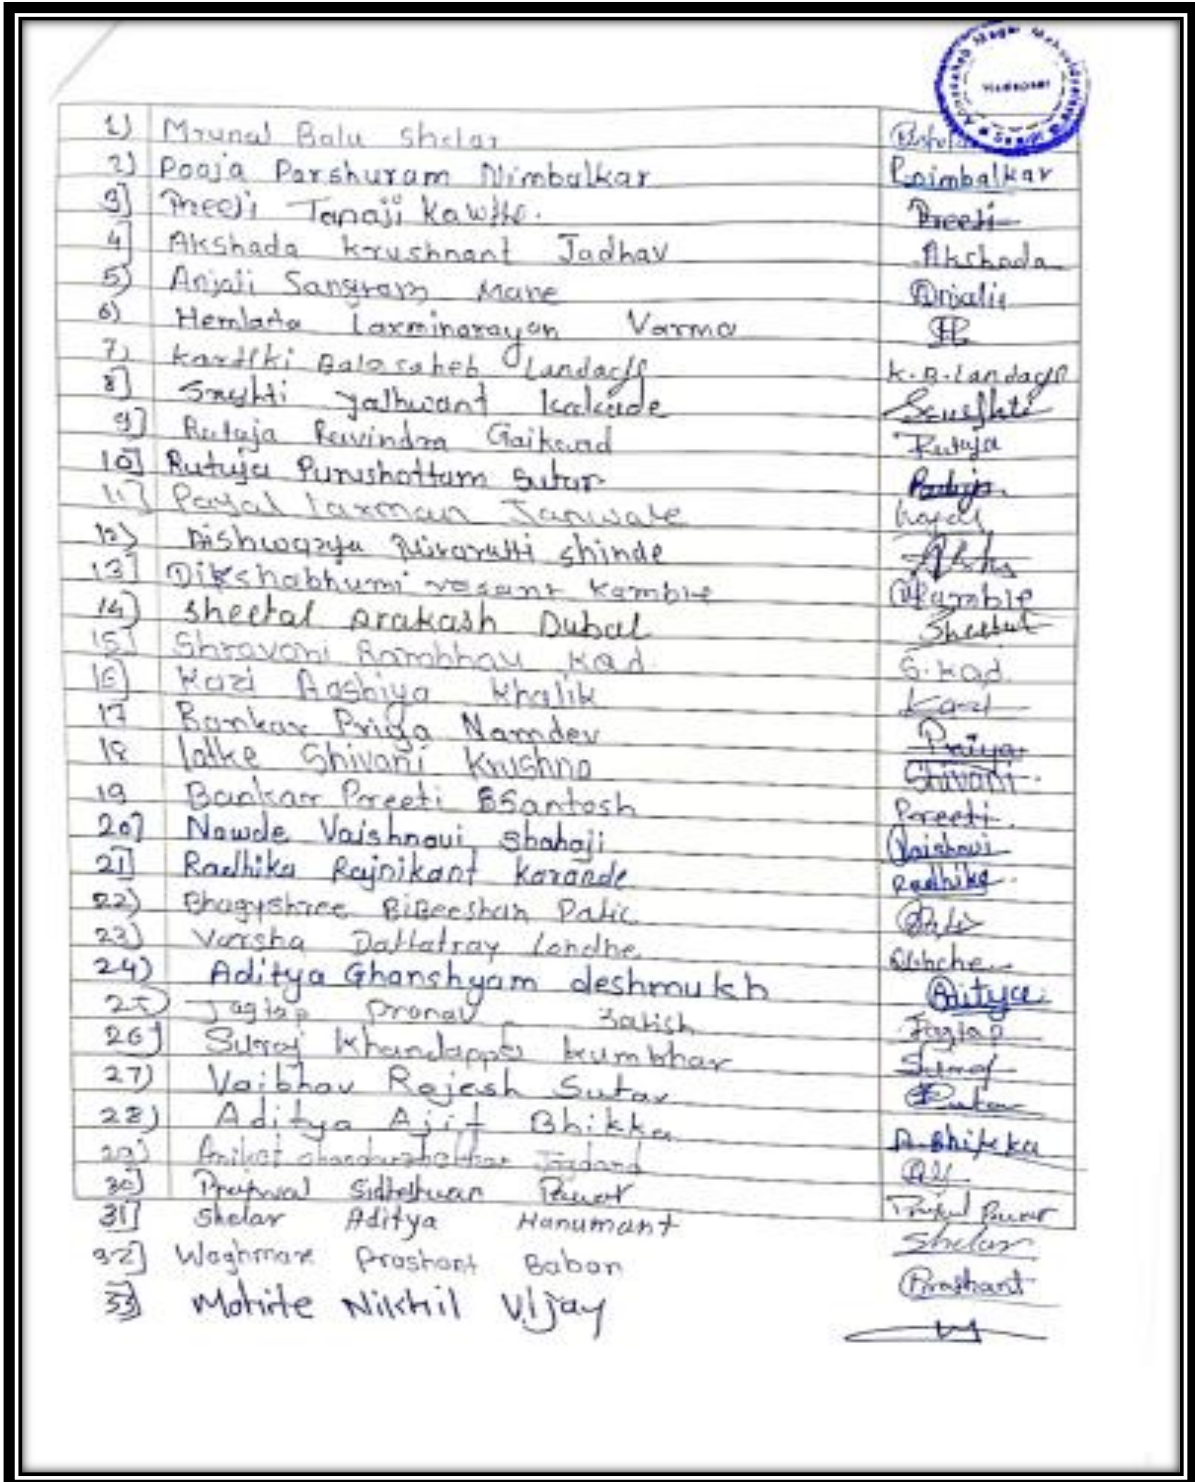 1) Mrunal Balu Shelar
2) Pooja Parshuram Nimbalkar Pnimbalkar
3] Preeti Tanaji Preeti
4] Akshada Krushnant Jadhav Akshada
5) Anjali Sangram Mane Anjali
6) Hemlata Laxminarayan Varma
7) Kartiki Balasaheb Landage K.B.Landage
8] Srushti Kakade Srushti
9] Rutuja Ravindra Gaikwad Rutuja
10] Rutuja Purushottam Sutar Rutuja
11] Payal Laxman
12) Aishwarya shinde
13] Dikshabhumi vasant Kamble Kamble
14) Sheetal Prakash Dubal Sheetal
15] Shravani Rambhau Kad S.Kad.
16] Kazi Aashiya Khalik Kazi
17 Bankar Priya Namdev Priya
18 Shivani Krushna Shivani
19 Bankar Preeti SSantosh Preeti
20] Nawde Vaishnavi Shahaji Vaishnavi
21] Radhika Rajnikant Karande Radhika
22) Bhagyshree BiBeeshan Patil
23) Varsha Dattatray Londhe
24) Aditya Ghanshyam deshmukh Aditya
25) Jagtap Pranav Satish Jagtap
26] Suraj Khandappa kumbhar Suraj
27) Vaibhav Rajesh Sutar Sutar
28) Aditya Ajit Bhikka A.Bhikka
29) Aniket Jagdand
30] Prajwal Pawar Pawar
31] Shelar Aditya Hanumant Shelar
32] Waghmare Prashant Baban Prashant
33] Mohite Nikhil Vijay